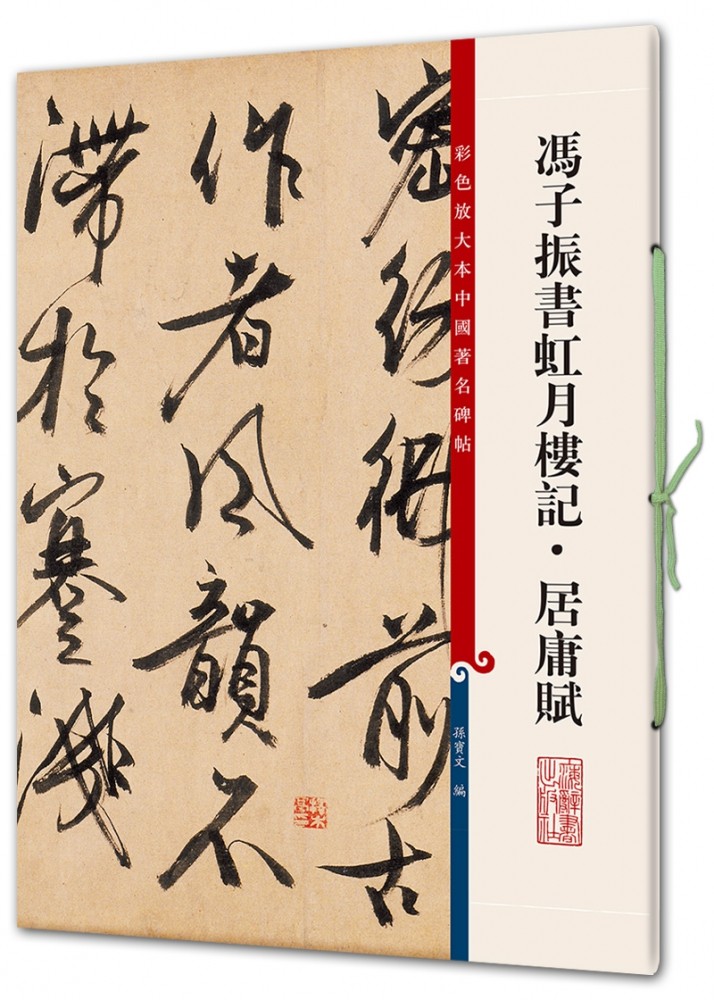 馮子振書虹月樓記·居庸賦
海辭書
出版社
彩色放大本中國著名碑帖
孫寶文 編
密 前古
作者風韻不
滯於蹇淺